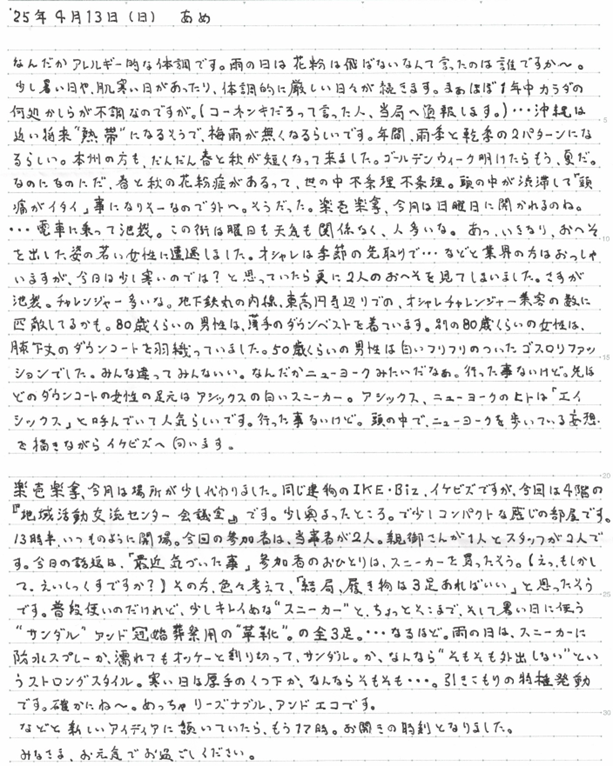 '25年4月13日(日) あめ
なんだかアレルギー的な体調です。雨の日は花粉は飛ばないなんて言ったのは誰ですか〜。
少し暑い日や、肌寒い日があったり、体調的に厳しい日々が続きます。まぁほぼ1年中カラダの
何処かしらが不調なのですが。(コーネンキだろって言った人、当局へ通報します。)…沖縄は
近い将来"熱帯"になるそうで、梅雨が無くなるらしいです。年間、雨季と乾季の2パターンにな
るらしい。本州の方も、だんだん春と秋が短くなって来ました。ゴールデンウィーク明けたらもう、夏だ。
なのになのにだ、春と秋の花粉症があるって、世の中不条理不条理。頭の中が渋滞して「頭
痛がイタイ」事になりそーなので外へ。そうだった。楽壱楽拿、今月は日曜日に開かれるのね。
…電車に乗って池袋。この街は曜日も天気も関係なく、人多いな。あっ、いきなり、おへそ
を出した姿の若い女性に遭遇しました。オシャレは季節の先取りで…などと業界の方はおっしゃ
いますが、今日は少し寒いのでは?と思っていたら更に2人のおへそを見てしまいました。さすが
池袋。チャレンジャー多いな。地下鉄丸の内線、東高円寺辺りでの、オシャレチャレンジャー乗客の数に
匹敵してるかも。80歳くらいの男性は、薄手のダウンベストを着ています。別の80歳くらいの女性は、
膝下丈のダウンコートを羽織っていました。50歳くらいの男性は白いフリフリのついたゴスロリファッ
ションでした。みんな違ってみんないい。なんだかニューヨークみたいだなぁ。行った事ないけど。先ほ
どのダウンコートの女性の足元はアシックスの白いスニーカー。アシックス、ニューヨークのヒトは「エイ
シックス」と呼んでいて人気らしいです。行った事ないけど。頭の中で、ニューヨークを歩いている妄想
を描きながらイケビズへ向います。
楽壱楽拿、今月は場所が少し代わりました。同じ建物のIKE・Biz、イケビズですが、今回は4階の
『地域活動交流センター 会議室』です。少し奥まったところ。で少しコンパクトな感じの部屋です。
13時半、いつものように開場。今回の参加者は、当事者が2人。親御さんが1人とスタッフが2人で
す。今日の話題は、「最近気づいた事」参加者のおひとりは、スニーカーを買ったそう。(えっ、もしかし
て、えいしっくすですか?)その方、色々考えて、「結局、履き物は3足あればいい」と思ったそう
です。普段使いのだけれど、少しキレイめな"スニーカー"と、ちょっとそこまで、そして暑い日に使う
"サンダル"アンド冠婚葬祭用の"革靴"。の全3足。…なるほど。雨の日は、スニーカーに
防水スプレーか、濡れてもオッケーと割り切って、サンダル。か、なんなら"そもそも外出しない"とい
うストロングスタイル。寒い日は厚手のくつ下か、なんならそもそも…。引きこもりの特権発動
です。確かにね〜。めっちゃリーズナブル、アンドエコです。
などと新しいアイディアに頷いていたら、もう17時。お開きの時刻となりました。
みなさま、お元気でお過ごしください。
5
10
15
20
25
30